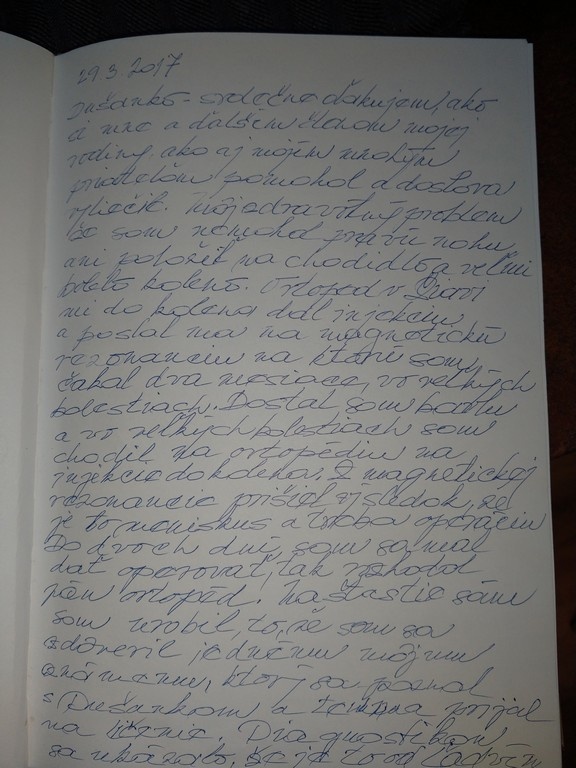 29.3.2017
Dušanko - srdečne ďakujem, ako
si mne a ďalším členom mojej
rodiny, ako aj mojím mnohým
priateľom pomohol a doslova
vyliečil. Môj zdravotný problém
že som nemohol pravú nohu
ani položiť na chodidlo a veľmi
bolelo koleno. Ortopéd v
mi do kolena dal injekciu
a poslal ma na magnetickú
rezonanciu na ktorú som
čakal dva mesiace, vo veľkých
bolestiach. Dostal som barlu
a vo veľkých bolestiach som
chodil na ortopédiu na
injekcie do kolena. Z magnetickej
rezonancie prišiel výsledok, že
je to meniskus a treba operáciu
Do dvoch dní som sa mal
dať operovať, tak rozhodol
pán ortopéd. Na šťastie sám
som urobil to, že som sa
zdôveril jednému môjmu
známemu, ktorý sa poznal
s Dušankom a ten ma prijal
na liečenie. Diagnostikou
sa ukázalo, že je to od